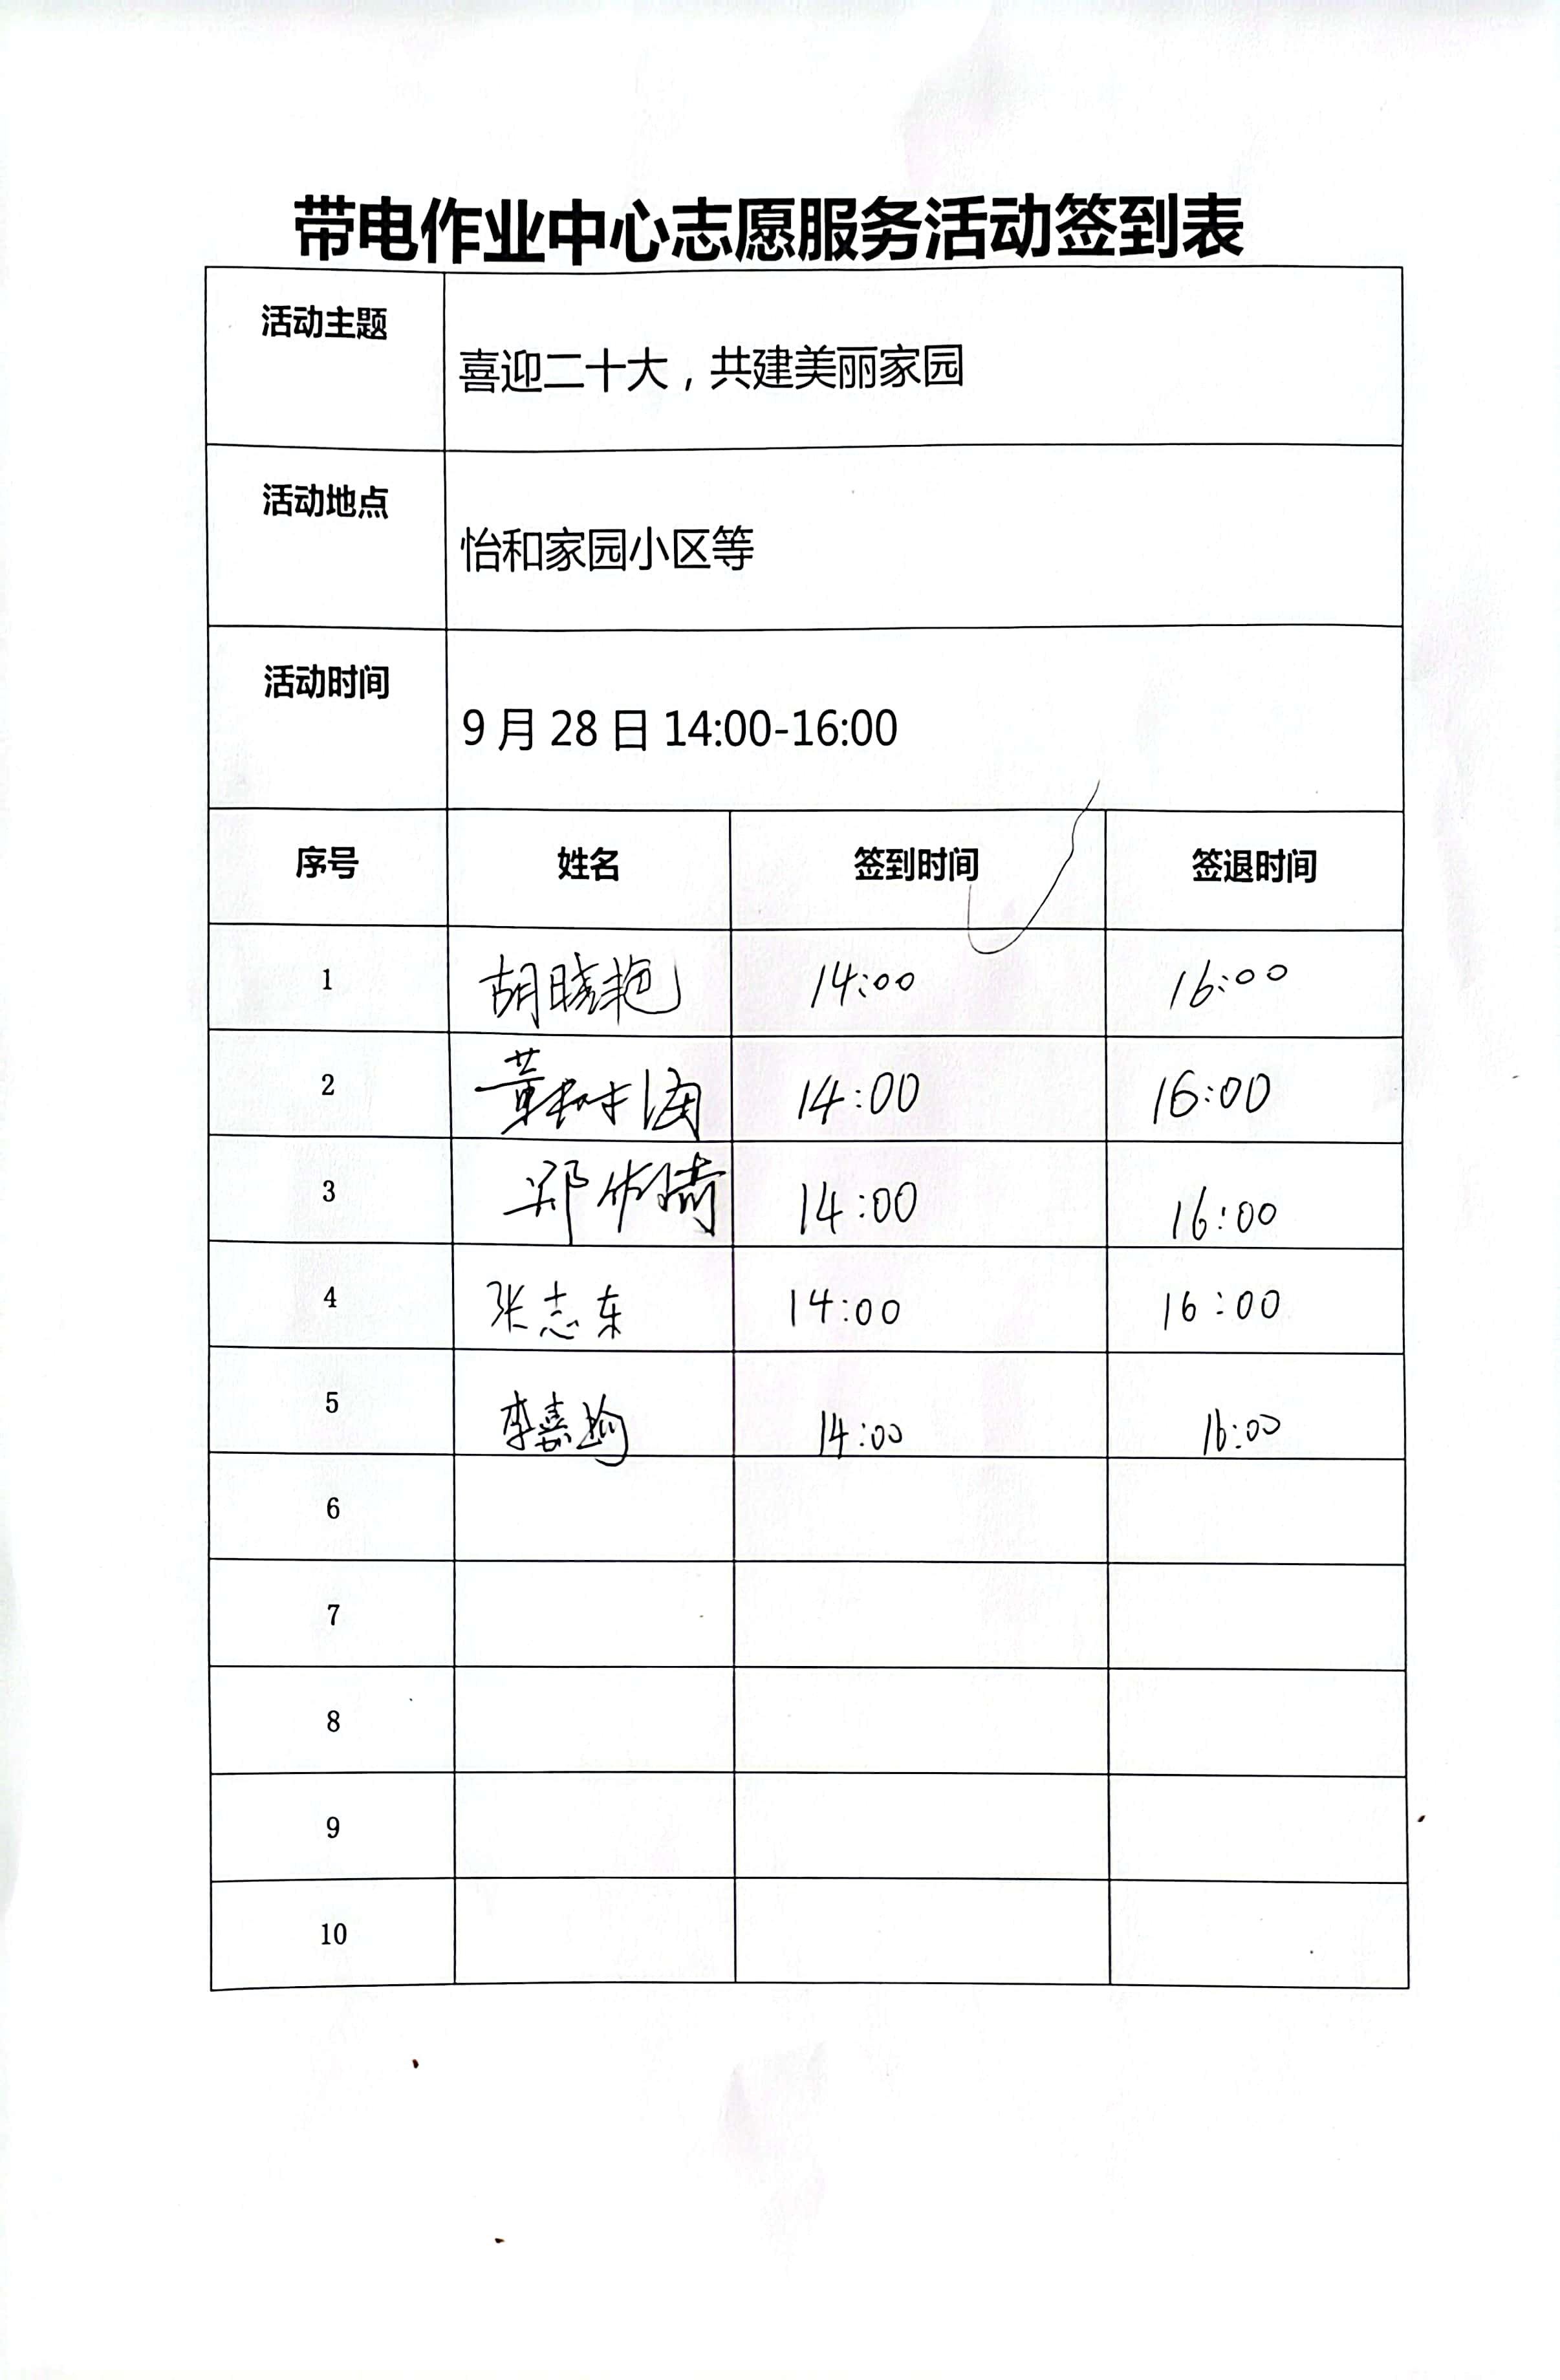 带电作业中心志愿服务活动签到表
活动主题 喜迎二十大，共建美丽家园
活动地点 怡和家园小区等
活动时间 9月28日14:00-16:00
序号 姓名 签到时间 签退时间
1 胡晓艳 14:00 16:00
2 董树海 14:00 16:00
3 郑佑晴 14:00 16:00
4 张志东 14:00 16:00
5 李嘉瑜 14:00 16:00
6
7
8
9
10